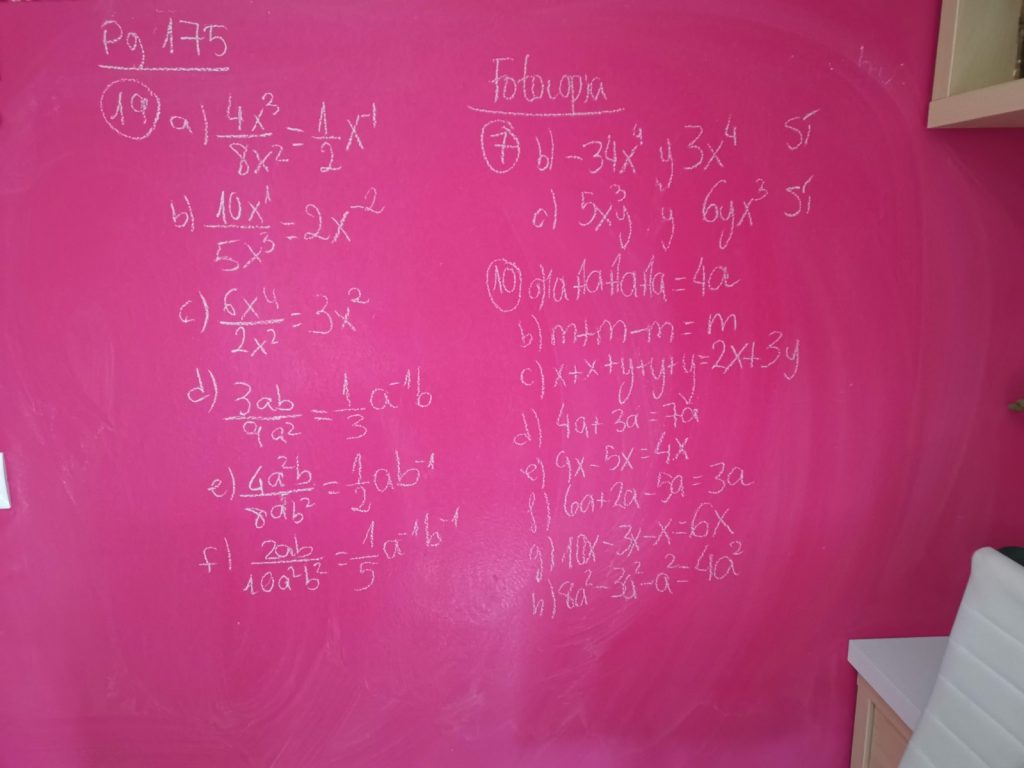 Pg 175
19 a) 4x³/8x² = 1/2 x⁻¹
b) 10x¹/5x³ = 2x⁻²
c) 6x⁴/2x² = 3x²
d) 3ab/9a² = 1/3 a⁻¹b
e) 4a²b/8ab² = 1/2 ab⁻¹
f) 2ab/10a²b² = 1/5 a⁻¹b⁻¹
Fotocopia
7 b) -34x⁴ y 3x⁴ Sí
c) 5x³y y 6yx³ Sí
10 a) 1a+1a+1a+1a = 4a
b) m+m-m = m
c) x+x+y+y+y = 2x+3y
d) 4a+3a = 7a
e) 9x-5x = 4x
f) 6a+2a-5a = 3a
g) 10x-3x-x = 6x
h) 8a²-3a²-a² = 4a²